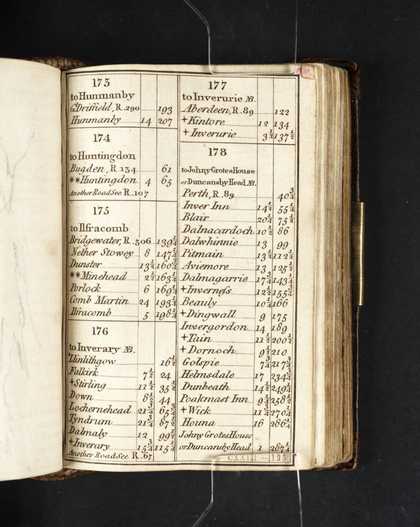 173
to Hunmanby
Gt. Driffield, R.290 193
Hunmanby 14 207
174
to Huntingdon
Bugden, R.134 61
**Huntingdon 4 65
Another Road See R.107
175
to Ilfracomb
Bridgewater, R.306 139¼
Nether Stowey 8 147¼
Dunster 13¼ 160½
**Minehead 2¾ 163¼
Porlock 6 169¼
Comb Martin 24 193¼
Ilfracomb 5 198¼
176
to Inverary NB.
Linlithgow 16½
Falkirk 7½ 24
+Stirling
Down 44
Lochernehead
Tyndrum
Dalmaly 12
+Inverary
Another Road See R.67
177
to Inverurie NB.
Aberdeen, R.89 122
+Kintore 12 134
+Inverurie 3½ 137½
178
to Johny Grotes House
or Duncansby Head, NB.
Perth, R.89
Inver Inn
Blair
Dalnacardoch 10½ 86
Dalwhinnie 13 99
Pitmain
Aviemore 13
Dalmagarrie
+Inverness
Beauly 10½ 166
+Dingwall 9 175
Invergordon 14 189
+Tain 11½ 200½
+Dornoch 9½ 210
Golspie
Helmsdale 17
Dunbeath
Poakmast Inn
+Wick
Houna 16
Johny Grotes House
or Duncansby Head 1